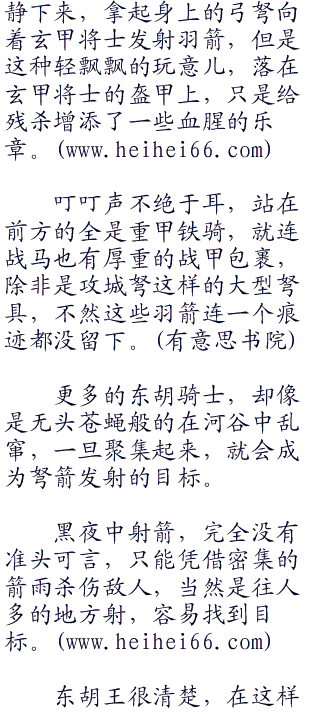 静下来，拿起身上的弓弩向
着玄甲将士发射羽箭，但是
这种轻飘飘的玩意儿，落在
玄甲将士的盔甲上，只是给
残杀增添了一些血腥的乐
章。(www.heihei66.com)
叮叮声不绝于耳，站在
前方的全是重甲铁骑，就连
战马也有厚重的战甲包裹，
除非是攻城弩这样的大型弩
具，不然这些羽箭连一个痕
迹都没留下。(有意思书院)
更多的东胡骑士，却像
是无头苍蝇般的在河谷中乱
窜，一旦聚集起来，就会成
为弩箭发射的目标。
黑夜中射箭，完全没有
准头可言，只能凭借密集的
箭雨杀伤敌人，当然是往人
多的地方射，容易找到目
标。(www.heihei66.com)
东胡王很清楚，在这样